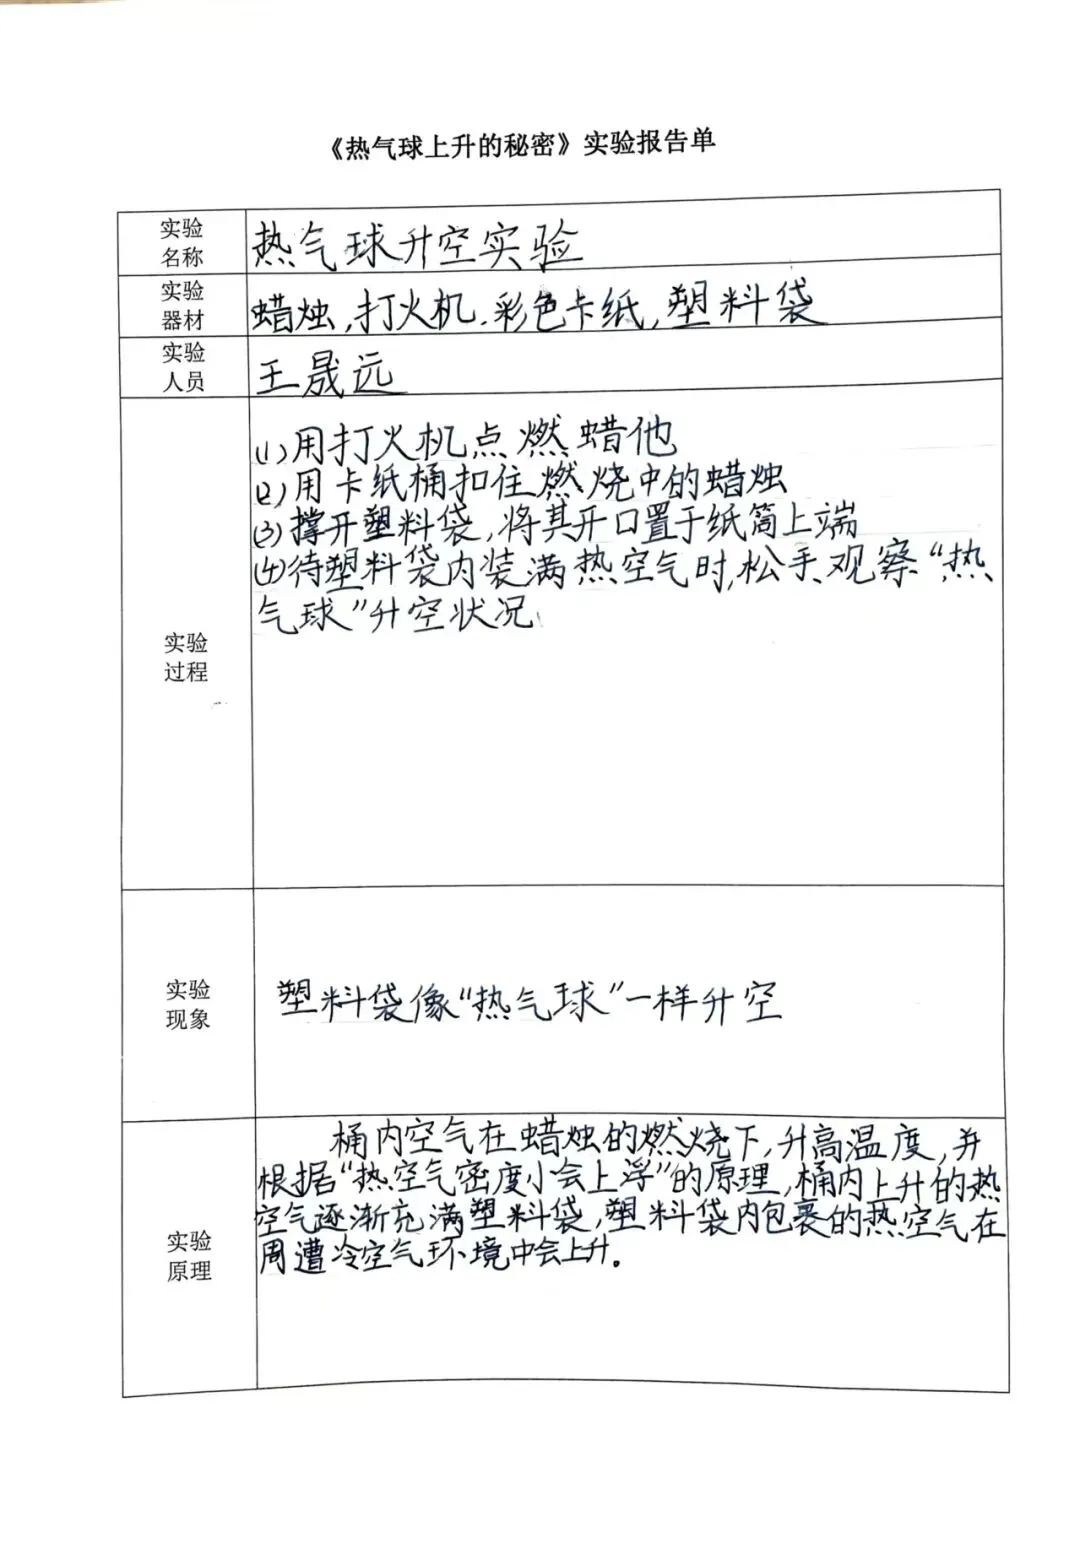 《热气球上升的秘密》实验报告单
实验
名称
热气球升空实验
实验
器材
蜡烛,打火机.彩色卡纸,塑料袋
实验
人员
王晟远
实验
过程
(1)用打火机点燃蜡他
(2)用卡纸桶扣住燃烧中的蜡烛
(3)撑开塑料袋,将其开口置于纸筒上端
(4)待塑料袋内装满热空气时,松手观察“热
气球”升空状况
实验
现象
塑料袋像“热气球”一样升空
实验
原理
桶内空气在蜡烛的燃烧下,升高温度,并
根据“热空气密度小会上浮”的原理,桶内上升的热
空气逐渐充满塑料袋,塑料袋内包裹的热空气在
周遭冷空气环境中会上升。